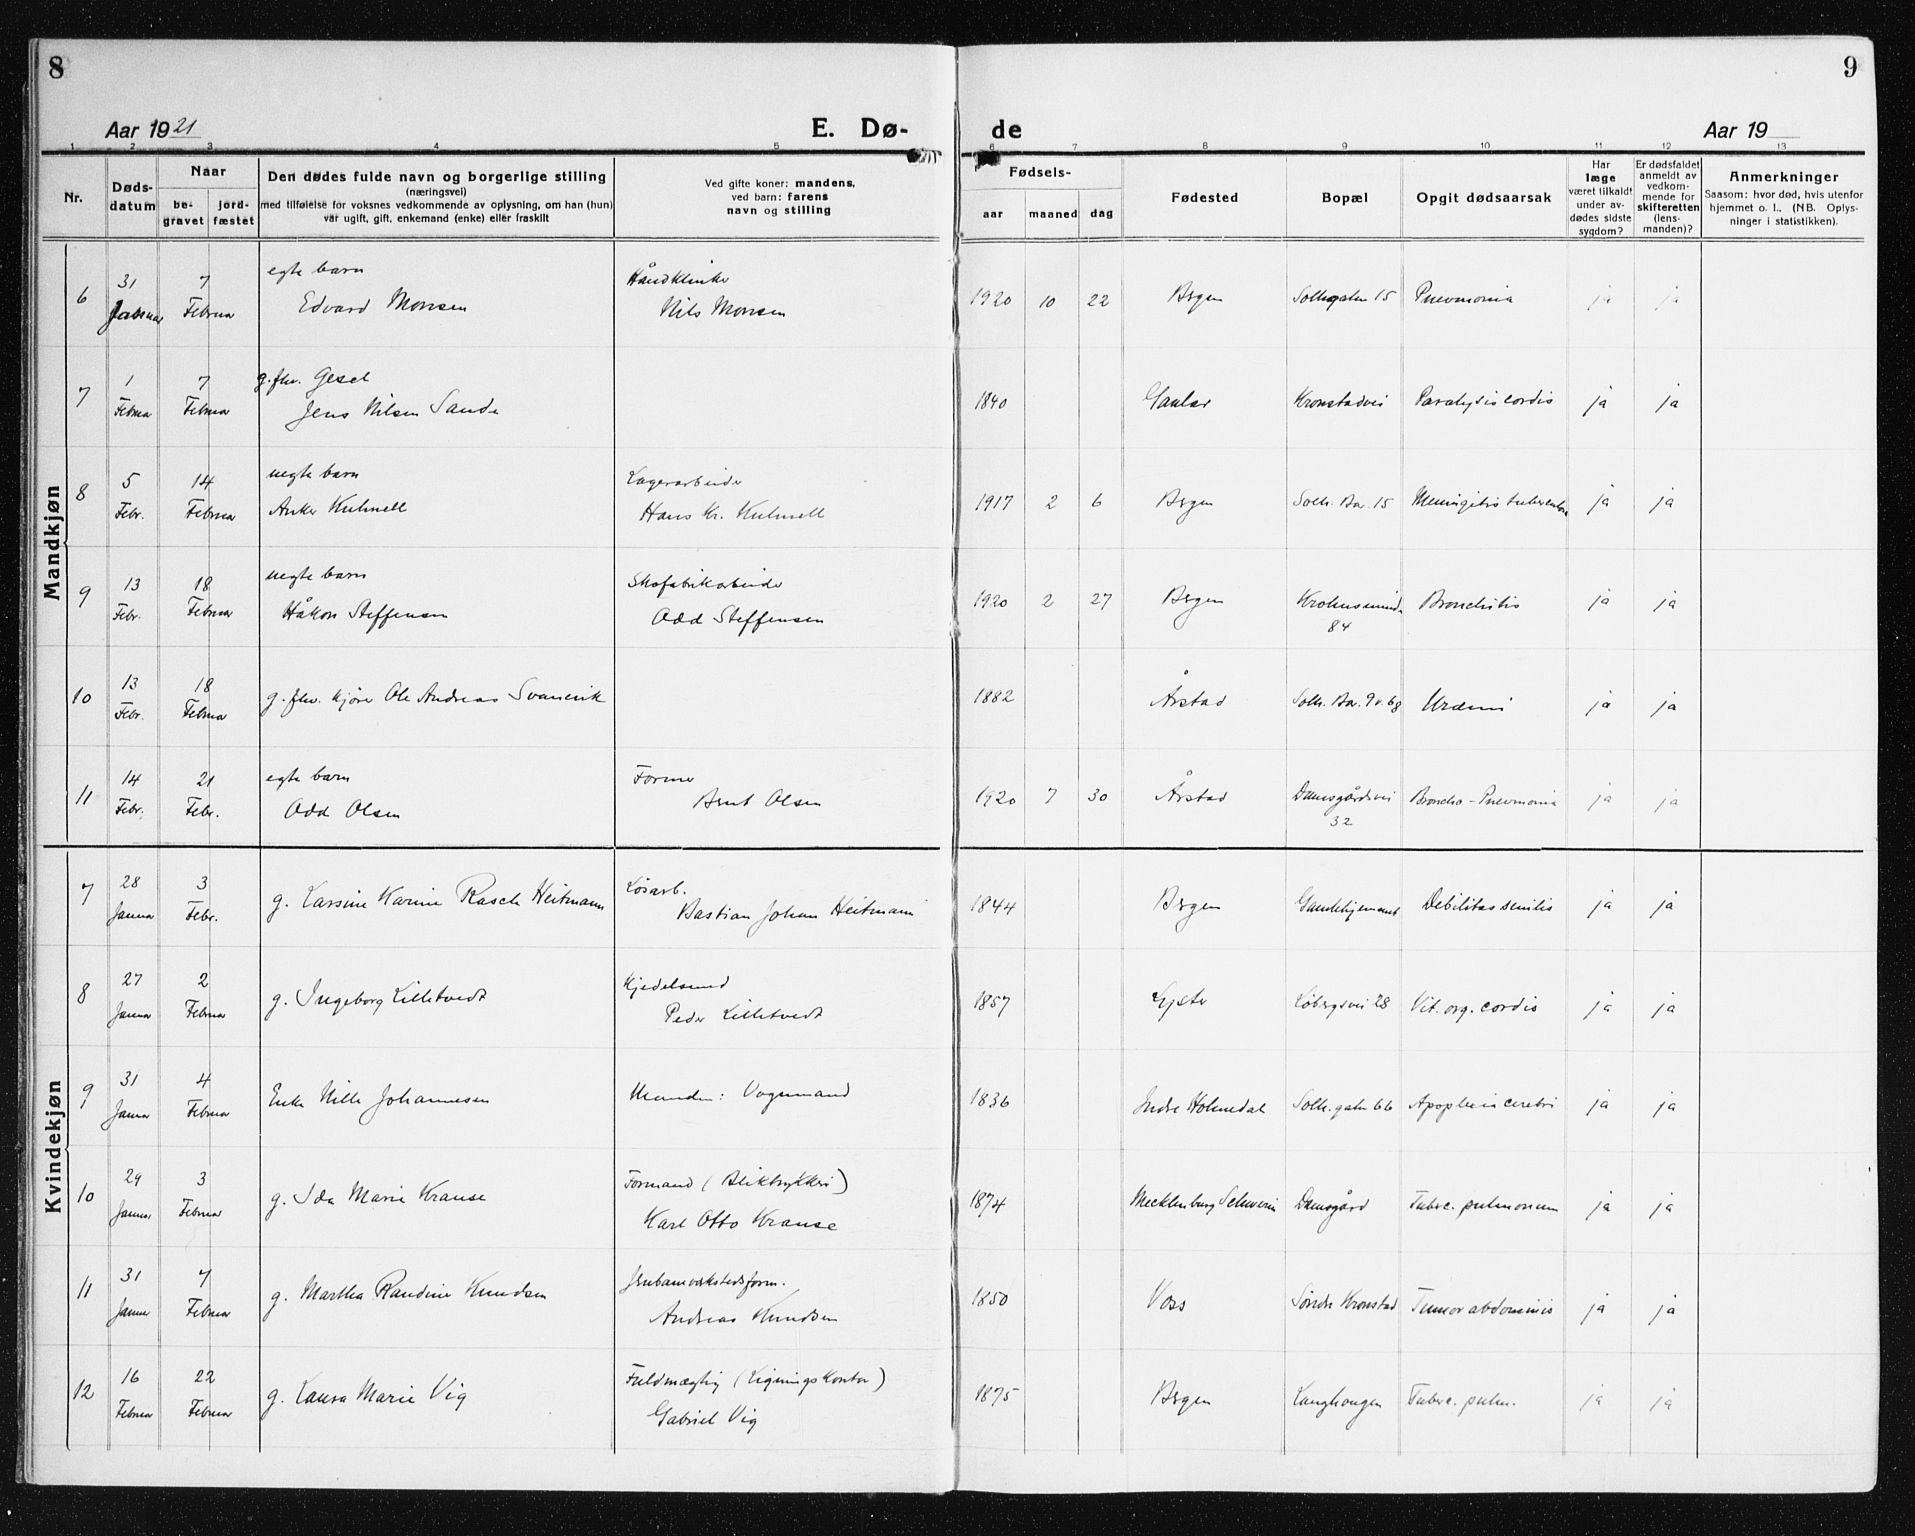 8
9
Aar 1921
E. Dø-
de
Aar 19
1 2 3 4 5 6 7 8 9 10 11 12 13
Nr.
Døds-
datum
Naar
be-
gravet
jord-
fæstet
Den dødes fulde navn og borgerlige stilling
(næringsvei)
med tilføielse for voksnes vedkommende av oplysning, om han (hun)
var ugift, gift, enkemand (enke) eller fraskilt
Ved gifte koner: mandens,
ved barn: farens
navn og stilling
Fødsels-
aar
maaned
dag
Fødested
Bopæl
Opgit dødsaarsak
Har
læge
været tilkaldt
under av-
dødes sidste
sygdom?
Er dødsfaldet
anmeldt av
vedkom-
mende for
skifteretten
(lens-
manden)?
Anmerkninger
Saasom: hvor død, hvis utenfor
hjemmet o. l. (NB. Oplys-
ninger i statistikken).
Mandkjøn
6 31 Januar 7 Februar egte barn
Edvard Monsen
Nils Monsen
1920 10 22 Bergen Solheimsgaten 15 Pneumonia ja ja
7 1 Februar 7 Februar g. fhv.
Jens Nilsen Sande
1840 Gaular Kronstadvei Paralysis cordis ja ja
8 5 Febr. 14 Februar uegte barn
Anker Kuhnell
Lagerarbeider
Hans Kr. Kuhnell
1917 2 6 Bergen Solh. Bar. 15 Meningitis tuberculosa ja ja
9 13 Febr. 18 Februar uegte barn
Håkon Steffensen
Skofabrikarbeider
Odd Steffensen
1920 2 27 Bergen Krohnsminde
84
Bronchitis ja ja
10 13 Febr. 18 Februar g. fhv. kjører Ole Andreas Svanevik
1882 Årstad Solh. Bar. 9 v. 68 Uræmi ja ja
11 14 Febr. 21 Febr. egte barn
Odd Olsen
Former
Bernt Olsen
1920 7 30 Årstad Damsgårdsvei
32
Broncho-Pneumonia ja ja
Kvindekjøn
7 28 Januar 3 Febr. g. Larsine Karine Rasch Heitmann
Løsarb.
Bastian Johan Heitmann
1844 Bergen Gamlehjemmet Debilitas senilis ja ja
8 27 Januar 2 Februar g. Ingeborg Lilletvedt
Kjedelsmed
Peder Lilletvedt
1857 Lyster Løbergsvei 28 Vit. org. cordis ja ja
9 31 Januar 4 Februar Enke Nille Johannesen
Manden: Vognmand
1836 Indre Holmedal Solh. gaten 66 Apoplexia cerebri ja ja
10 29 Januar 3 Februar g. Ida Marie Krause
Formand (Bliktrykkeri)
Karl Otto Krause
1874 Mecklenburg Schwerin Damsgård Tuberc. pulmonum ja ja
11 31 Januar 7 Februar g. Martha Randine Knudsen
Jernbaneverkstedsform.
Andreas Knudsen
1850 Voss Søndre Kronstad Tumor abdominis ja ja
12 16 Februar 22 Februar g. Laura Marie Vig
Fuldmægtig (Ligningskontor)
Gabriel Vig
1875 Bergen Langhaugen Tuberc. pulm. ja ja